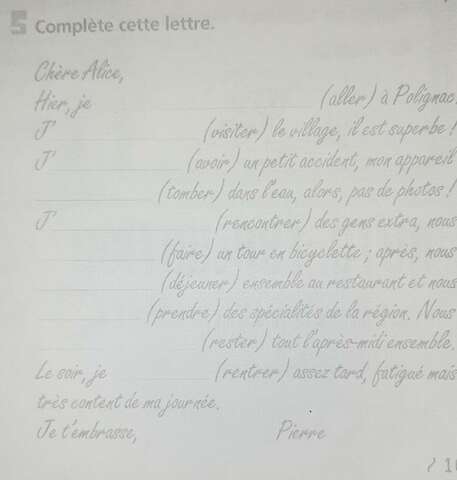 5 Complète cette lettre.
Chère Alice,
Hier, je ____________ (aller) à Polignac.
J' ____________ (visiter) le village, il est superbe !
J' ____________ (avoir) un petit accident, mon appareil
____________ (tomber) dans l'eau, alors, pas de photos !
J' ____________ (rencontrer) des gens extra, nous
____________ (faire) un tour en bicyclette ; après, nous
____________ (déjeuner) ensemble au restaurant et nous
____________ (prendre) des spécialités de la région. Nous
____________ (rester) tout l'après-midi ensemble.
Le soir, je ____________ (rentrer) assez tard, fatigué mais
très content de ma journée.
Je t'embrasse, Pierre